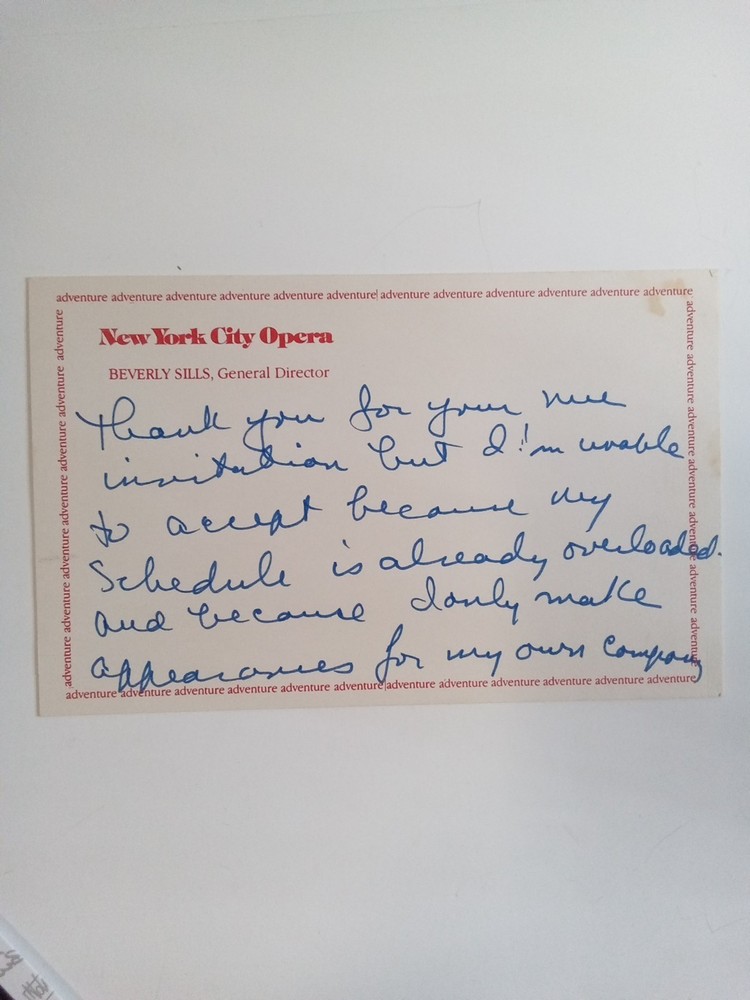 adventure adventure adventure adventure adventure adventure adventure adventure adventure adventure adventure adventure
New York City Opera
BEVERLY SILLS, General Director
Thank you for your nice
invitation but I'm unable
to accept because my
Schedule is already overloaded.
and because I only make
appearances for my own company
adventure adventure adventure adventure adventure adventure adventure adventure adventure adventure adventure adventure
adventure adventure adventure adventure adventure adventure adventure
adventure adventure adventure adventure adventure adventure adventure